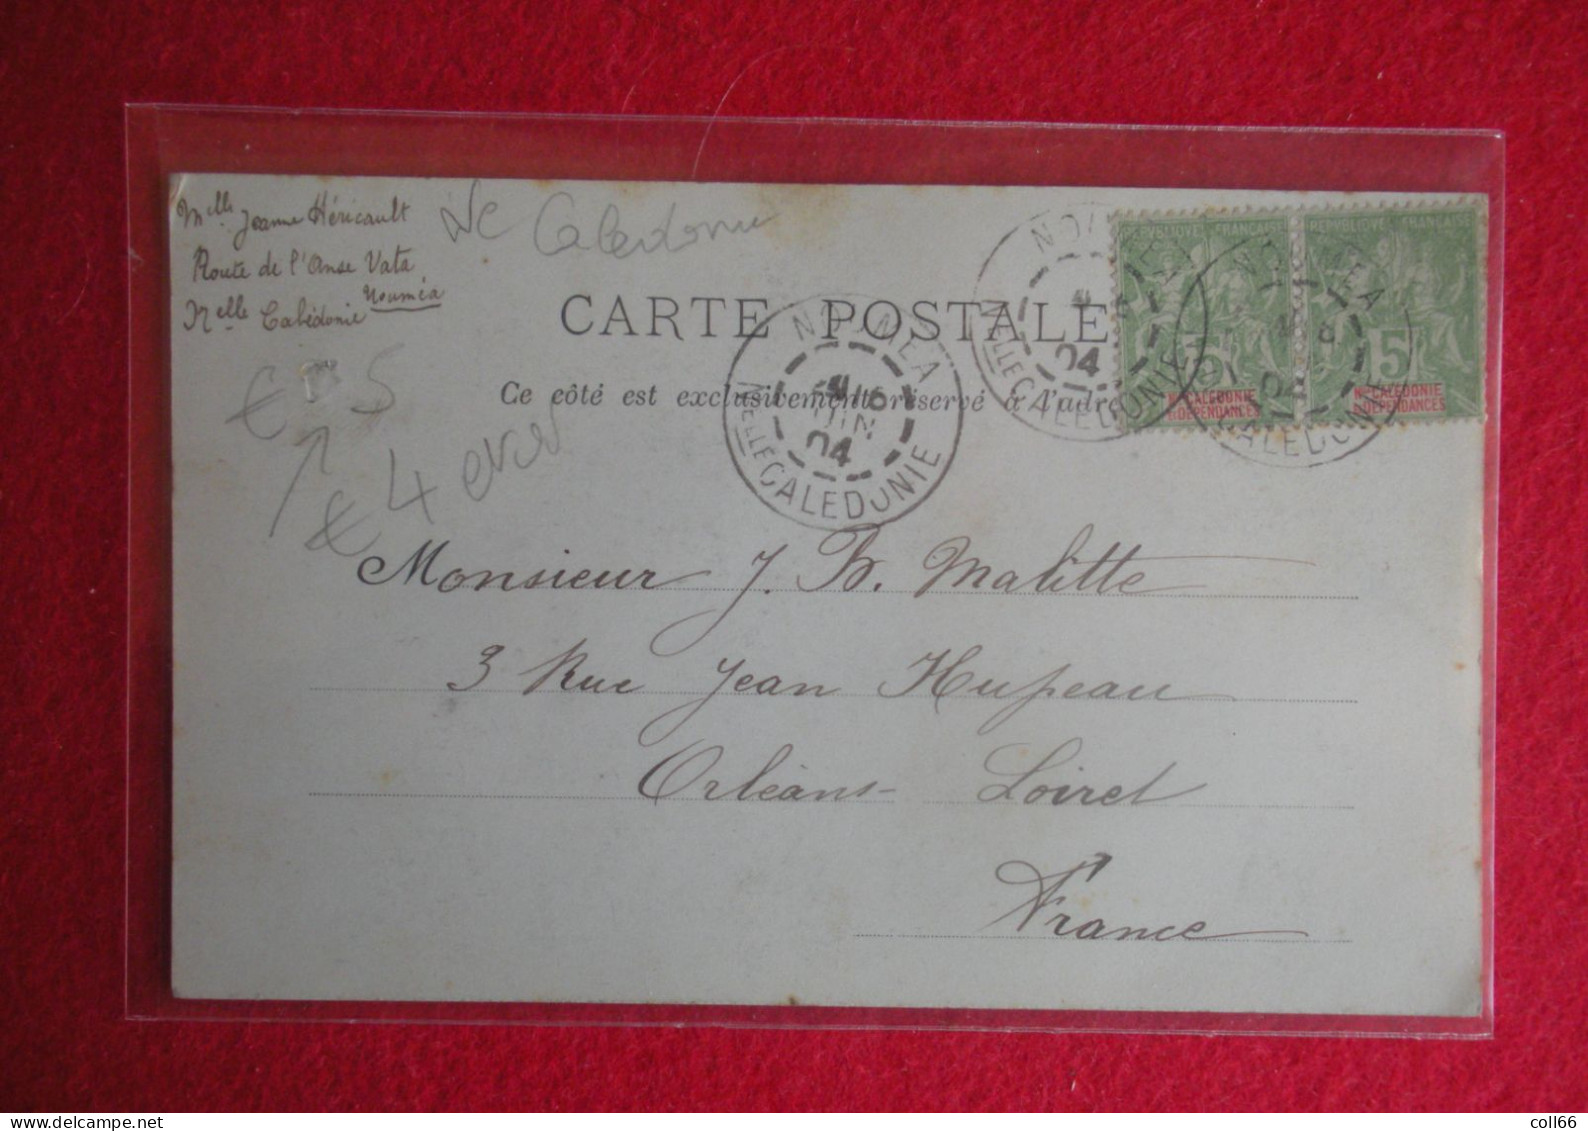 Melle Jeanne Héricault
Route de l'Anse Vata
Nouméa
Nelle Calédonie
Nc Caledonie
CARTE POSTALE
Ce côté est exclusivement réservé à l'adre
€ 5
€ 4
NOUMEA
6
JUIN
04
Nelle CALEDONIE
NOUMEA
04
Nelle CALEDONIE
NOUMEA
04
CALEDONIE
REPUBLIQUE FRANÇAISE
5
Nlle CALEDONIE
DEPENDANCES
REPUBLIQUE FRANÇAISE
5
Nlle CALEDONIE
DEPENDANCES
Monsieur J. B. Malitte
3 Rue Jean Hupeau
Orléans - Loiret
France
delcampe.net
coll66